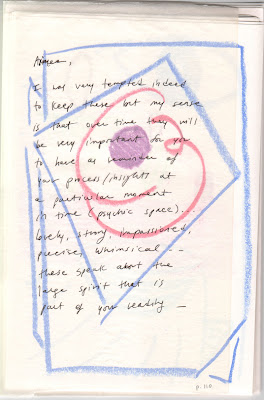 Aimee,
I was very tempted indeed
to keep these but my sense
is that over time they will
be very important for you
to have as reminder of
your process/insights at
a particular moment
in time (psychic space)...
lovely, strong, impassioned,
precise, whimsical --
these speak about the
large spirit that is
part of your reality —
p. 110